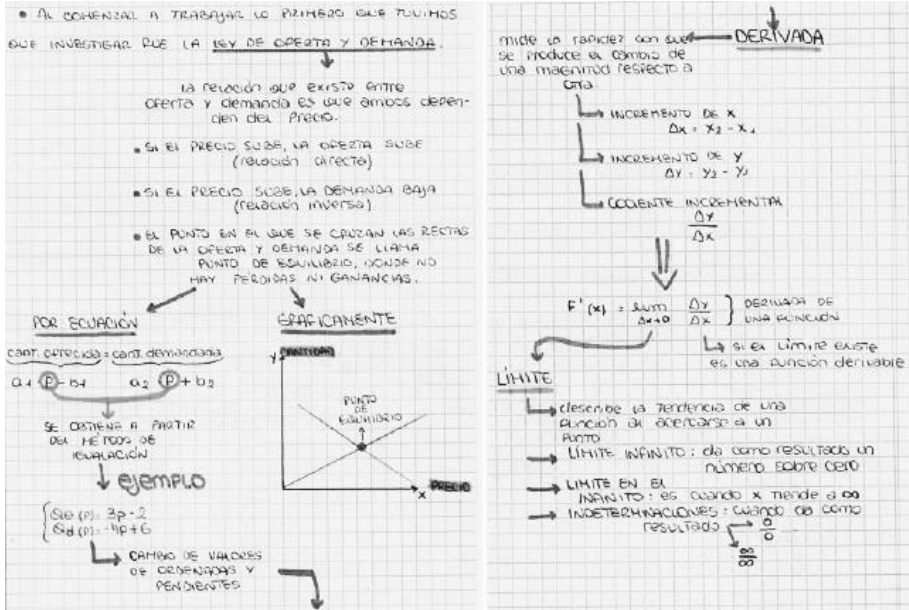 • AL COMENZAR A TRABAJAR LO PRIMERO QUE TUVIMOS
QUE INVESTIGAR FUE LA LEY DE OFERTA Y DEMANDA.
La relación que existe entre
oferta y demanda es que ambos depen-
den del Precio.
• SI EL PRECIO SUBE, LA OFERTA SUBE
(relación directa)
• SI EL PRECIO SUBE, LA DEMANDA BAJA
(relación inversa)
• EL PUNTO EN EL QUE SE CRUZAN LAS RECTAS
DE LA OFERTA Y DEMANDA SE LLAMA
PUNTO DE EQUILIBRIO, DONDE NO
HAY PÉRDIDAS NI GANANCIAS.
POR ECUACIÓN
cant. ofrecida = cant. demandada
a1 P - b1 a2 P + b2
SE OBTIENE A PARTIR
DEL MÉTODO DE
IGUALACIÓN
ejemplo
Qo (P) = 3p - 2
Qd (P) = -4p + 6
CAMBIO DE VALORES
DE ORDENADAS Y
PENDIENTES
GRAFICAMENTE
Y CANTIDAD
PUNTO
DE
EQUILIBRIO
PRECIO
X
DERIVADA
mide la rapidez con que
se produce el cambio de
una magnitud respecto a
otra
INCREMENTO DE X
Δx = x2 - x1
INCREMENTO DE Y
ΔY = Y2 - Y1
COCIENTE INCREMENTAL
ΔY
Δx
F'(x) = lim ΔY DERIVADA DE
Δx→0 Δx UNA FUNCIÓN
SI EL LÍMITE EXISTE
es una función derivable
LÍMITE
describe la tendencia de una
función al acercarse a un
PUNTO
LÍMITE INFINITO: da como resultado un
número sobre cero
LIMITE EN EL
INFINITO: es cuando x tiende a ∞
INDETERMINACIONES: cuando da como
resultado 0
0
∞
∞